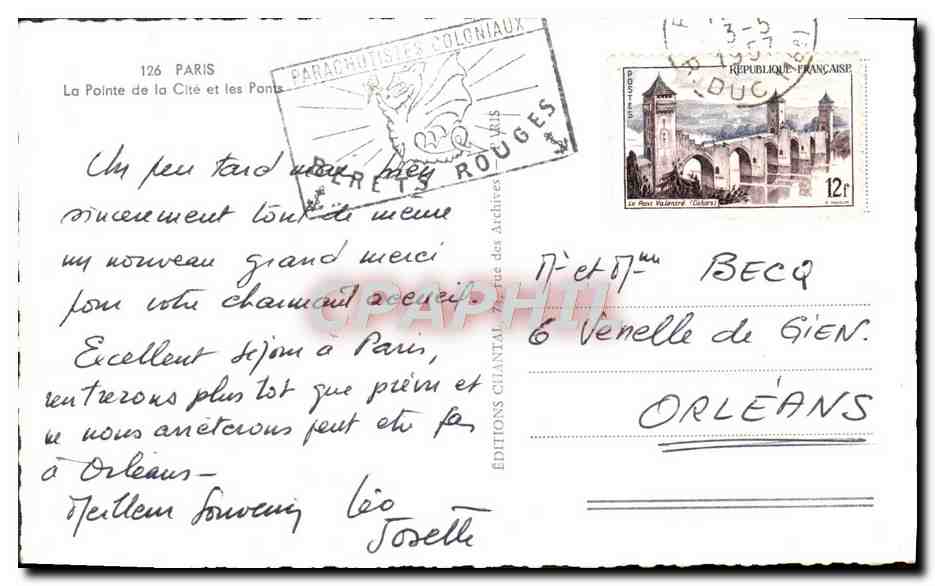 126 PARIS
La Pointe de la Cité et les Ponts
PARACHUTISTES COLONIAUX
BERETS ROUGES
3-5
1957
DUC
REPUBLIQUE FRANÇAISE
POSTES
12F
Le Pont Valentré (Cahors)
Un peu tard mais bien
sincerement tout de même
un nouveau grand merci
pour votre charmant accueil.
Excellent séjour à Paris,
rentrerons plus tot que prévu et
ne nous arrêterons peut etre pas
à Orléans -
Meilleur Souvenir Léo
Josette
EDITIONS CHANTAL 74, rue des Archives PARIS
CPAPHIL
Mr et Mme BECQ
6 Venelle de GIEN.
ORLÉANS